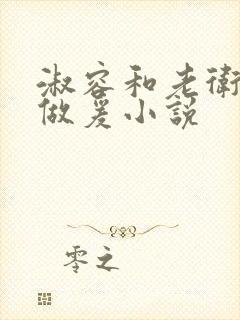 淑容和老衛
做爰小説
零之